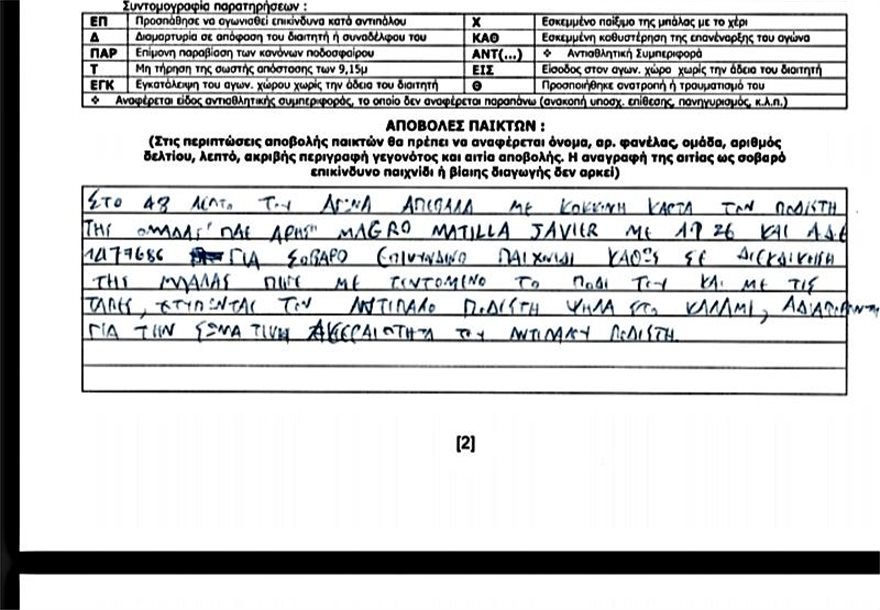 Συντομογραφία παρατηρήσεων :
ΕΠ Προσπάθησε να αγωνισθεί επικίνδυνα κατά αντιπάλου Χ Εσκεμμένο παίξιμο της μπάλας με το χέρι
Δ Διαμαρτυρία σε απόφαση του διαιτητή ή συναδέλφου του ΚΑΘ Εσκεμμένη καθυστέρηση της επανέναρξης του αγώνα
ΠΑΡ Επίμονη παραβίαση των κανόνων ποδοσφαίρου ΑΝΤ(...) ❖ Αντιαθλητική Συμπεριφορά
Τ Μη τήρηση της σωστής απόστασης των 9,15μ ΕΙΣ Είσοδος στον αγων. χώρο χωρίς την άδεια του διαιτητή
ΕΓΚ Εγκατάλειψη του αγων. χώρου χωρίς την άδεια του διαιτητή Θ Προσποιήθηκε ανατροπή ή τραυματισμό του
❖ Αναφέρεται είδος αντιαθλητικής συμπεριφοράς, το οποίο δεν αναφέρεται παραπάνω (ανακοπή υποσχ. επίθεσης, πανηγυρισμός, κ.λ.π.)
ΑΠΟΒΟΛΕΣ ΠΑΙΚΤΩΝ :
(Στις περιπτώσεις αποβολής παικτών θα πρέπει να αναφέρεται όνομα, αρ. φανέλας, ομάδα, αριθμός
δελτίου, λεπτό, ακριβής περιγραφή γεγονότος και αιτία αποβολής. Η αναγραφή της αιτίας ως σοβαρό
επικίνδυνο παιχνίδι ή βίαιης διαγωγής δεν αρκεί)
ΣΤΟ 48 ΛΕΠΤΟ ΤΟΥ ΑΓΩΝΑ ΑΠΕΒΑΛΑ ΜΕ ΚΟΚΚΙΝΗ ΚΑΡΤΑ ΤΟΝ ΠΟΔ/ΣΤΗ
ΤΗΣ ΟΜΑΔΑΣ "ΠΑΕ ΑΡΗΣ" MAGRO MATILLA JAVIER ΜΕ ΑΡ 26 ΚΑΙ Α.Δ.Ε
1477686 ΓΙΑ ΣΟΒΑΡΟ ΕΠΙΚΥΝΔΙΝΟ ΠΑΙΧΝΙΔΙ ΚΑΘΩΣ ΣΕ ΔΙΕΚΔΙΚΗΣΗ
ΤΗΣ ΜΠΑΛΑΣ ΠΗΓΕ ΜΕ ΤΕΝΤΟΜΕΝΟ ΤΟ ΠΟΔΙ ΤΟΥ ΚΑΙ ΜΕ ΤΙΣ
ΤΑΠΕΣ, ΧΤΥΠΩΝΤΑΣ ΤΟΝ ΑΝΤΙΠΑΛΟ ΠΟΔ/ΣΤΗ ΨΗΛΑ ΣΤΟ ΚΑΛΑΜΙ, ΑΔΙΑΦΟΡΩΝΤΑΣ
ΓΙΑ ΤΗΝ ΣΩΜΑΤΙΚΗ ΑΚΕΡΑΙΟΤΗΤΑ ΤΟΥ ΑΝΤΙΠΑΛΟΥ ΠΟΔ/ΣΤΗ.
[2]